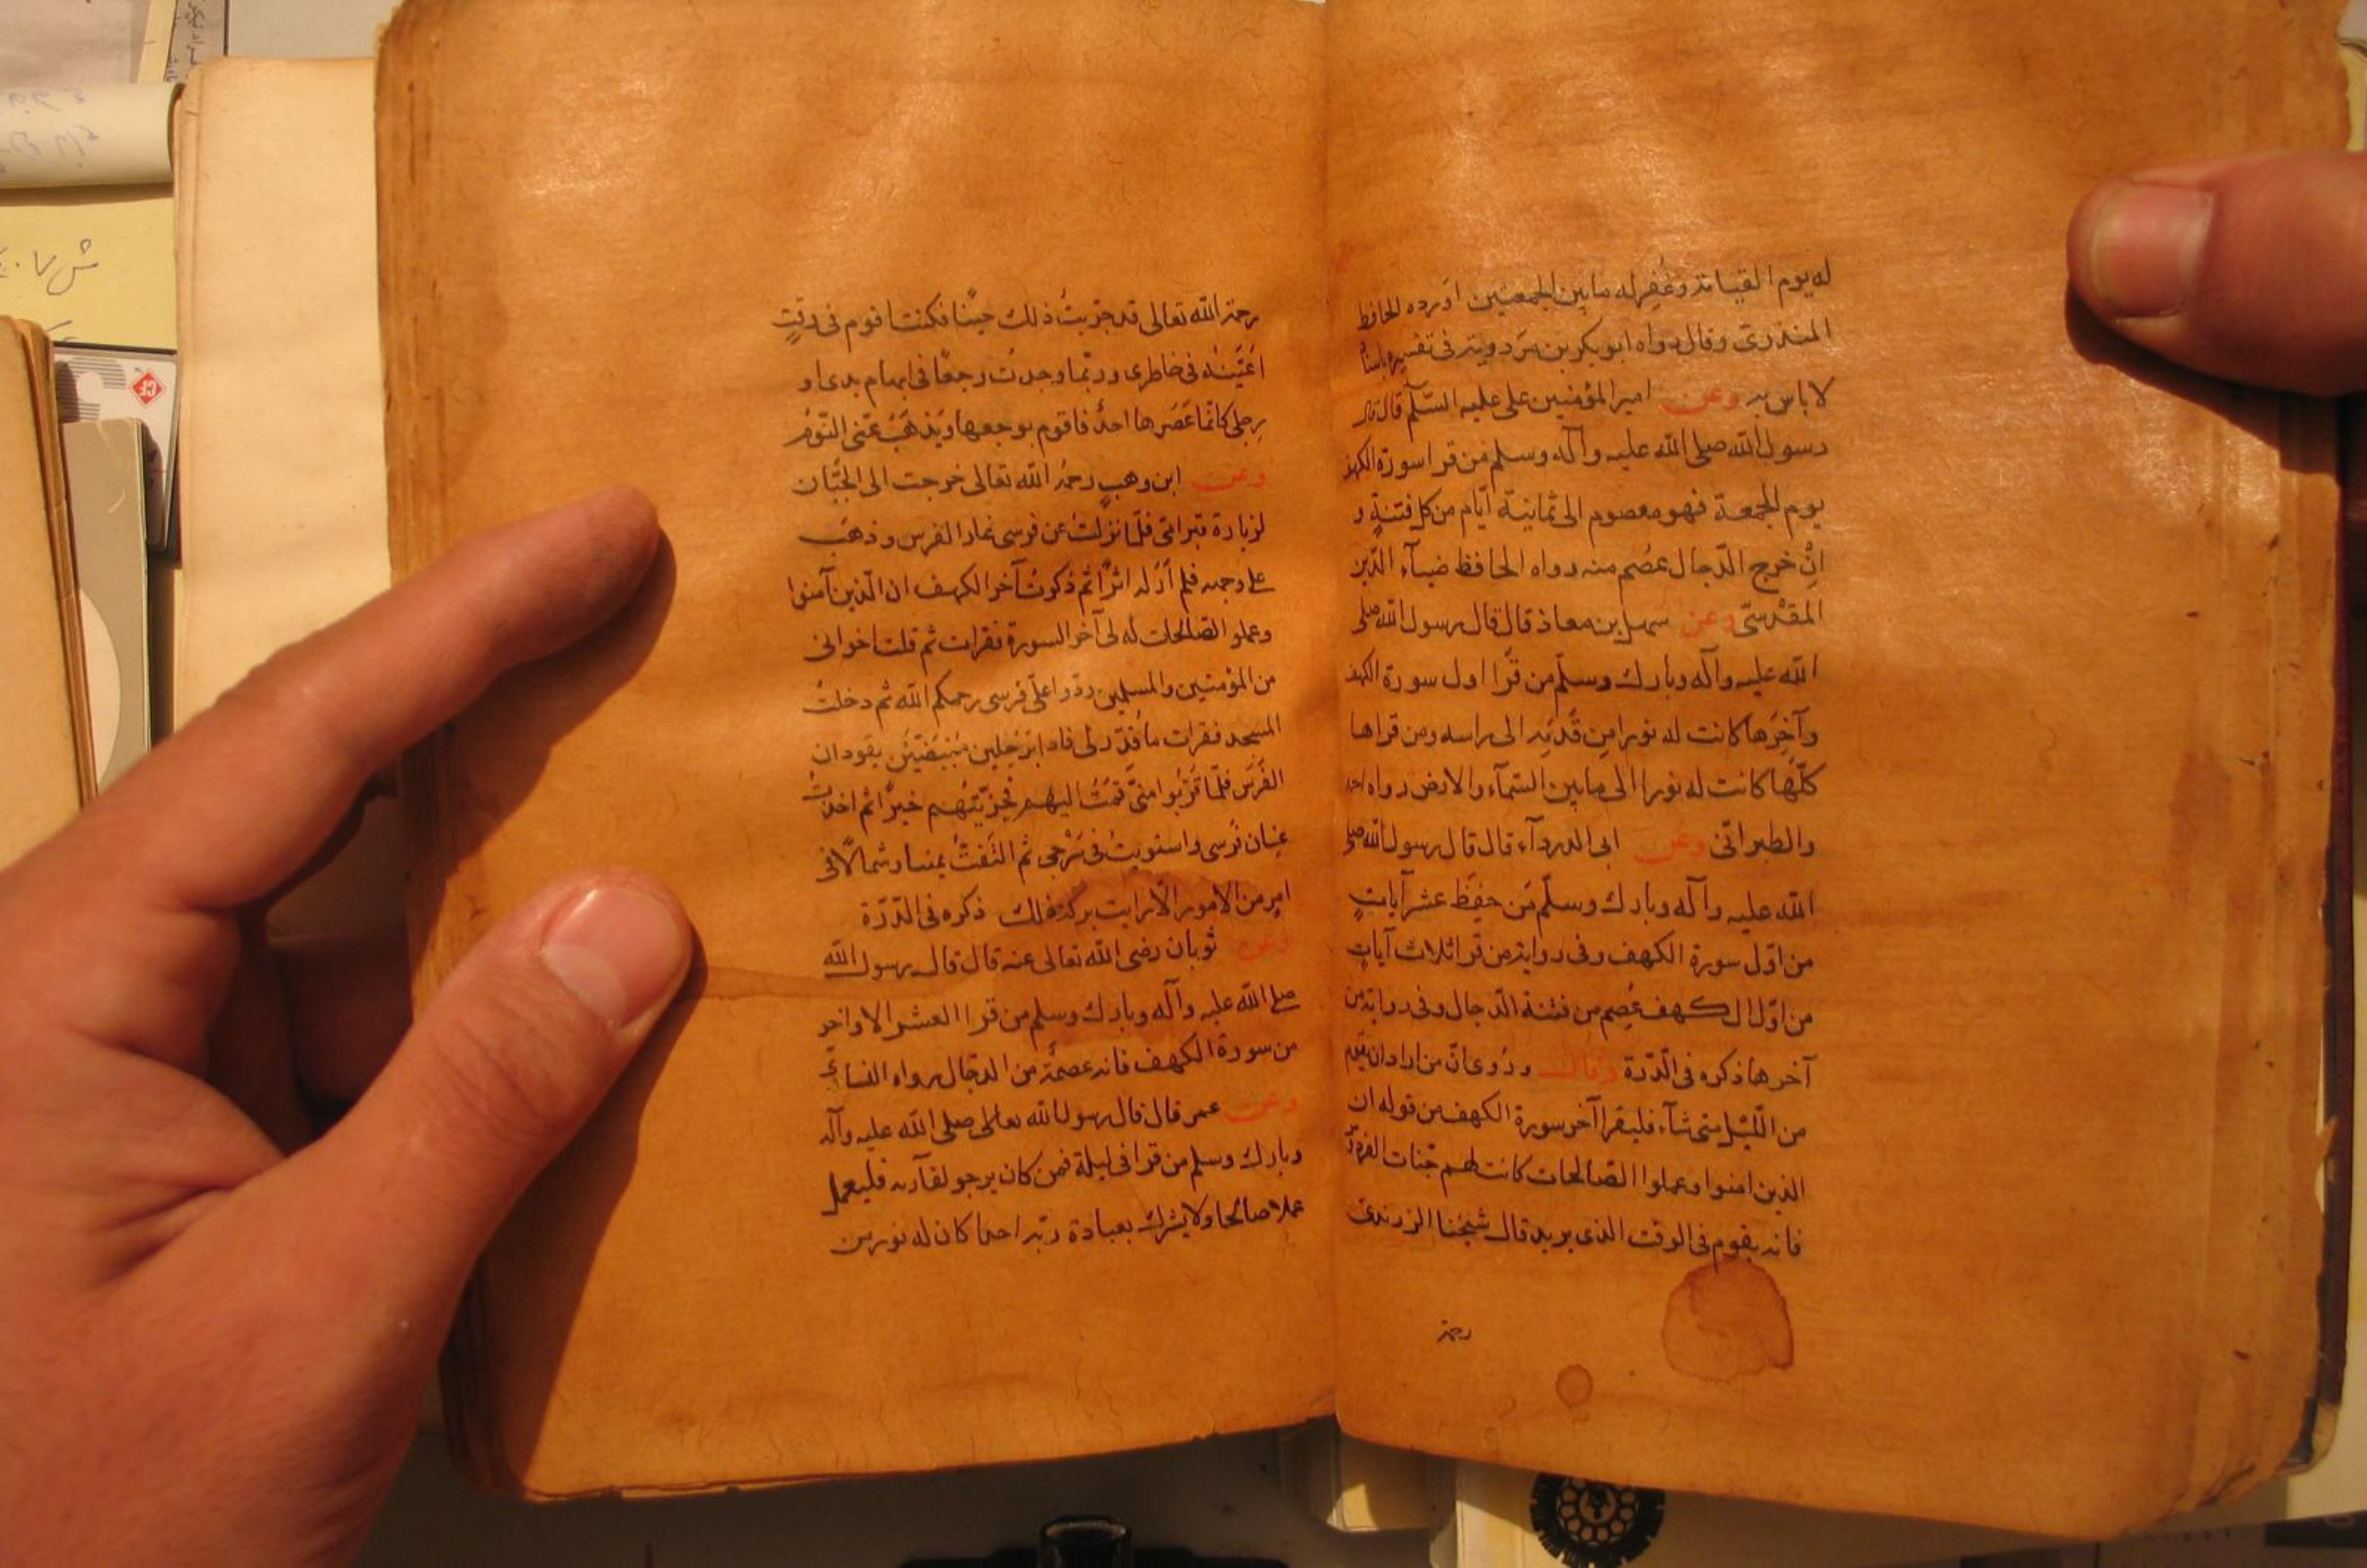 له يوم القيامة وغُفِر له ما بين الجمعتين اورده الحافظ
المنذرى وقال رواه ابو بكر بن مردويه فى تفسيره باسنا
لا باس به وعن امير المؤمنين على عليه السّلم قال قال
رسول الله صلى الله عليه وآله وسلم من قرا سورة الكهف
يوم الجمعة فهو معصوم الى ثمانية ايّام من كل فتنةٍ و
انْ خرج الدّجال عصُم منه رواه الحافظ ضياء الدّين
المقدسّى وعن سهل بن معاذ قال قال رسول الله صلى
الله عليه وآله وبارك وسلّم من قرا اول سورة الكهف
وآخرها كانت له نورا من قَدَمِه الى راسه ومن قراها
كلّها كانت له نورا الى ما بين السّمآء والارض رواه احمد
والطبرانّى وعن ابى الدردآء قال قال رسول الله صلى
الله عليه وآله وبارك وسلّم مَن حفِظ عشر آياتٍ
من اوّل سورة الكهف وفى رواية من قرا ثلاث آيات
من اوّل الكهف عُصِم من فتنة الدّجال وفى رواية من
آخرها ذكره فى الدّرّة وقال ورُوى انّ من اراد ان يقوم
من اللّيل متى شآء فليقرا آخر سورة الكهف من قوله ان
الذين امنوا وعملوا الصّالحات كانت لهم جنّات الفردو
فانه يقوم فى الوقت الذى يريد قال شيخنا الزرندى
رحمة
رحمة الله تعالى قد جرّبتُ ذلك حينًا فكنت اقوم فى وقتٍ
اُعَيّنه فى خاطرى وربّما وجدتُ وجعًا فى ابهام يدى او
رجلى كانّما عَصَرها احدٌ فاقوم بوجعها ويَذهَبُ عنّى النّومُ
وعن ابن وهبٍ رحمُه الله تعالى خرجت الى الجبّان
لزيارة قبر امّى فلّما نزلتُ عن فرسى غار الفرس وذهَب
على وجهه فلم اَرَ له اثرًا ثم ذكرتُ آخر الكهف ان الّذين آمنوا
وعملو الصّالحات له الى آخر السورة فقرات ثم قلت اخوانى
من المؤمنين والمسلمين ردّوا علّى فرسى رحمكم الله ثم دخلتُ
المسجد فقرات ما قُدّر لى فاذا برَجُلين يقودان
الفَرَس فلّما قَرُبوا منّى قمتُ اليهم فجزيّتُهم خيرًا ثم اخذتُ
عِنان فرسى واستويتُ فى سَرْجى ثم التَفتُّ يمينا وشمالًا فى
امرٍ من الامور الّا رايت بركة ذلك ذكره فى الدّرّة
وعن ثوبان رضى الله تعالى عنه قال قال رسول الله
صلى الله عليه وآله وبارك وسلم من قرا العشر الاواخر
من سورة الكهف فانه عصمةٌ من الدجّال رواه النسائّى
وعن عمر قال قال رسول الله تعالى صلى الله عليه وآله
وبارك وسلم من قرا فى ليلة فمن كان يرجو لقآء ربه فليعمل
عملا صالحا ولا يشرك بعبادة ربّه احدا كان له نور من